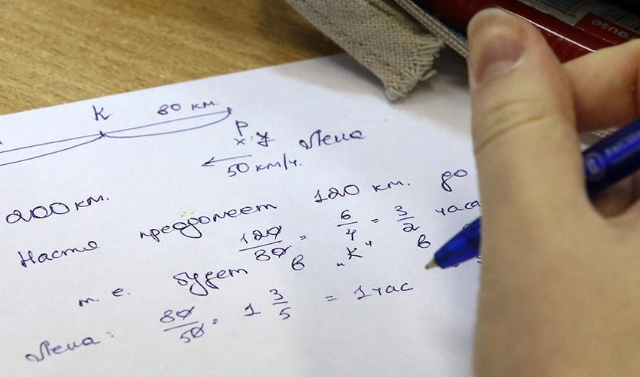 K 80 км.
P
x y Лена
50 км/ч.
200 км.
Настя преодолеет 120 км. до
120/80 = 6/4 = 3/2 часа
т. е. будет в "K" в
Лена: 80/50 = 1 3/5 = 1 час